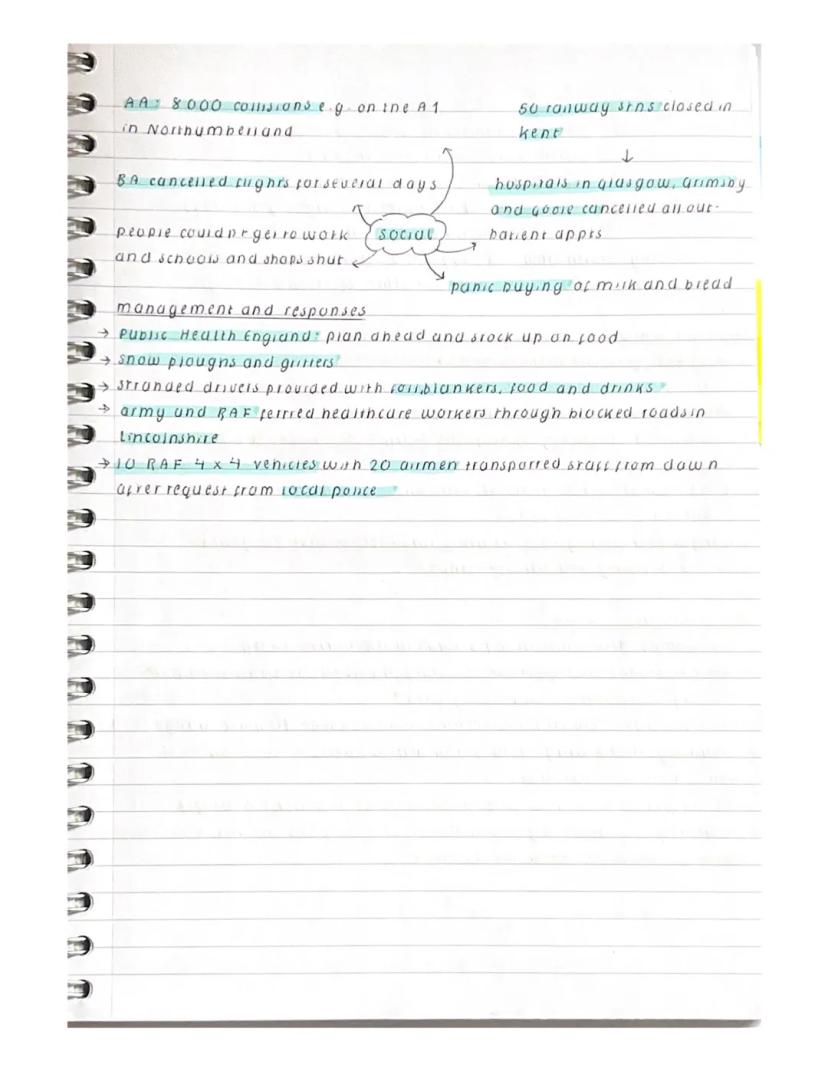 AA: 8000 collisions e.g. on the A1
in Northumberland
50 railway stns closed in
Kent
BA cancelled flights for several days
hospitals in Glasgow, Grimsby
and Goole cancelled all out-
patient appts
people couldn't get to work
and schools and shops shut
social
panic buying of milk and bread
management and responses
→ Public Health England: plan ahead and stock up on food
→ snow ploughs and gritters
→ stranded drivers provided with foil blankets, food and drinks
→ army and RAF ferried healthcare workers through blocked roads in
Lincolnshire
→ 10 RAF 4x4 vehicles with 20 airmen transported staff from dawn
after request from local police